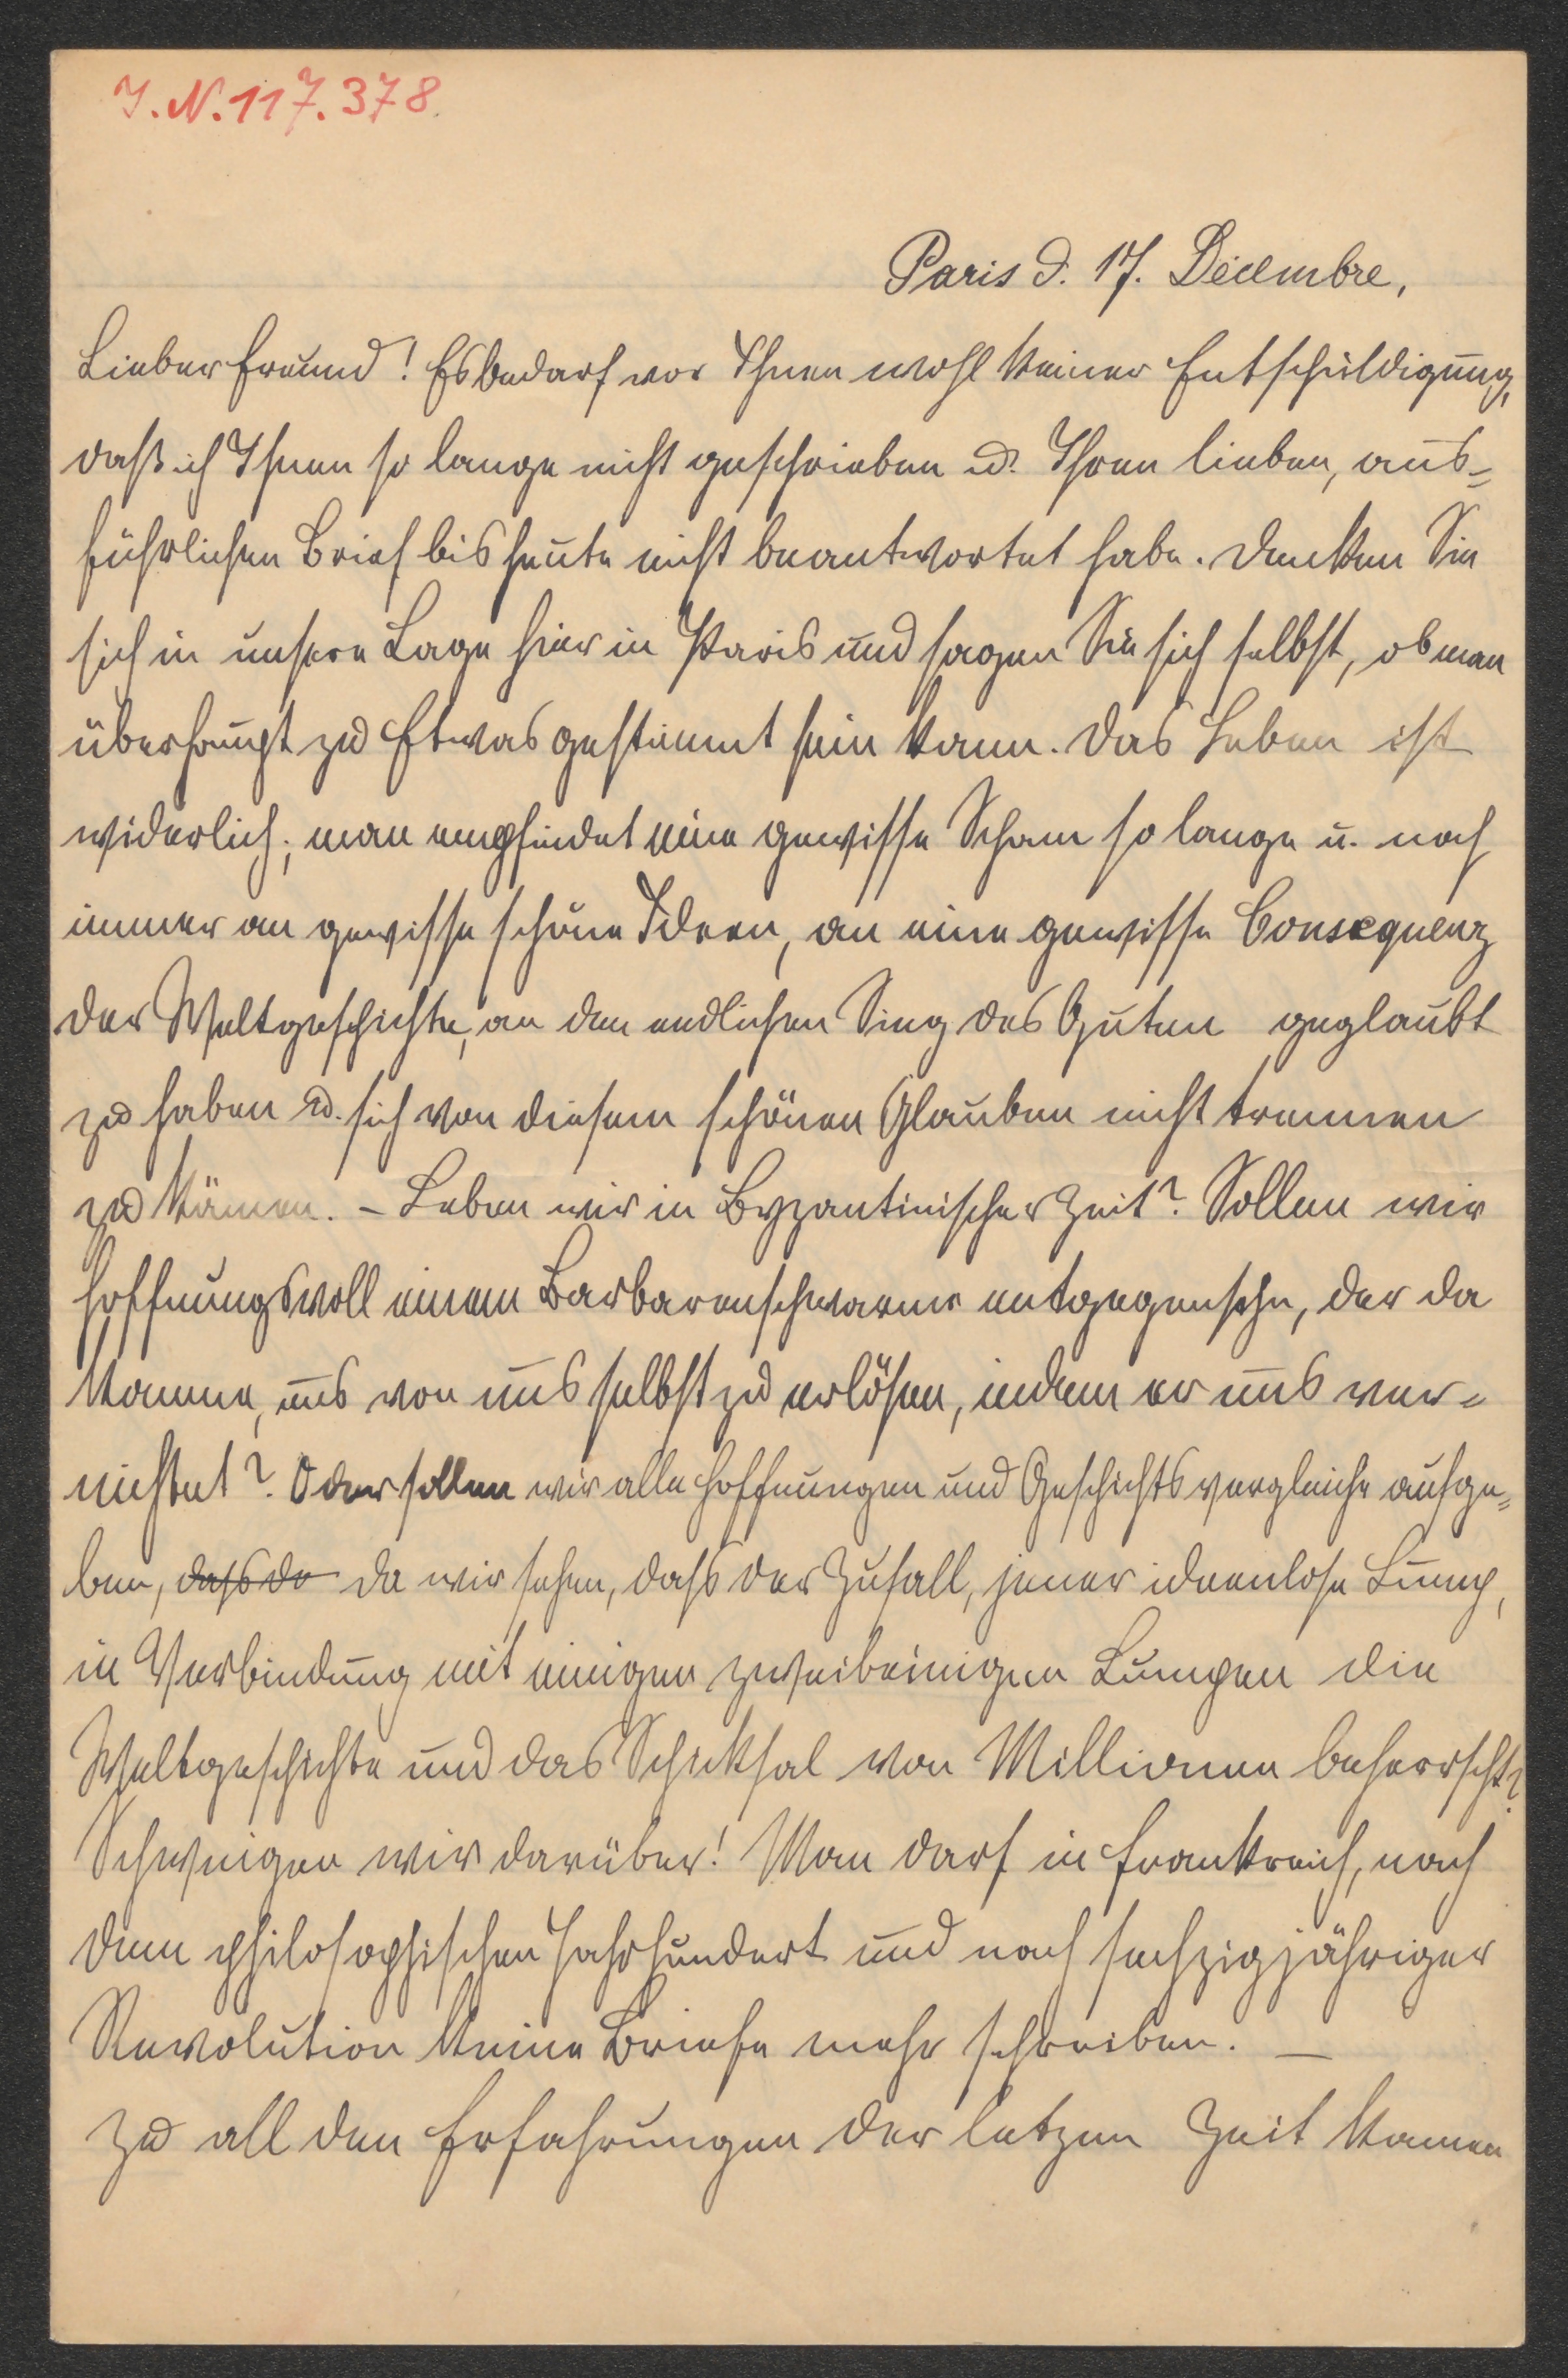 I. N. 117.378
Paris d. 17. Décembre,
Lieber Freund! Es bedarf vor Ihnen wohl keiner Entschuldigung,
daß ich Ihnen so lange nicht geschrieben u. Ihren lieben, aus=
führlichen Brief bis heute nicht beantwortet habe. Denken Sie
sich in unsere Lage hier in Paris und sagen Sie sich selbst, ob man
überhaupt zu Etwas gestimmt sein kann. Das Leben ist
widerlich; man empfindet eine gewisse Scham so lange u. noch
immer an gewisse schöne Ideen, an eine gewisse Consequenz
der Weltgeschichte, an den endlichen Sieg des Guten geglaubt
zu haben u. sich von diesem schönen Glauben nicht trennen
zu können. – Leben wir in Byzantinischer Zeit? Sollen wir
hoffnungsvoll einem Barbarenschwarme entgegensehn, der da
komme, uns von uns selbst zu erlösen, indem er uns ver=
nichtet? Oder sollen wir alle Hoffnungen und Geschichtsvergleiche aufge=
ben, dass da da wir sehen, dass der Zufall, jener ideenlose Lump,
in Verbindung mit einigen zweibeinigen Lumpen die
Weltgeschichte und das Schicksal von Millionen beherrscht?
Schweigen wir darüber! Man darf in Frankreich, nach
dem philosophischen Jahrhundert und nach sechzigjähriger
Revolution keine Briefe mehr schreiben. —
Zu all den Erfahrungen der letzen Zeit kamen